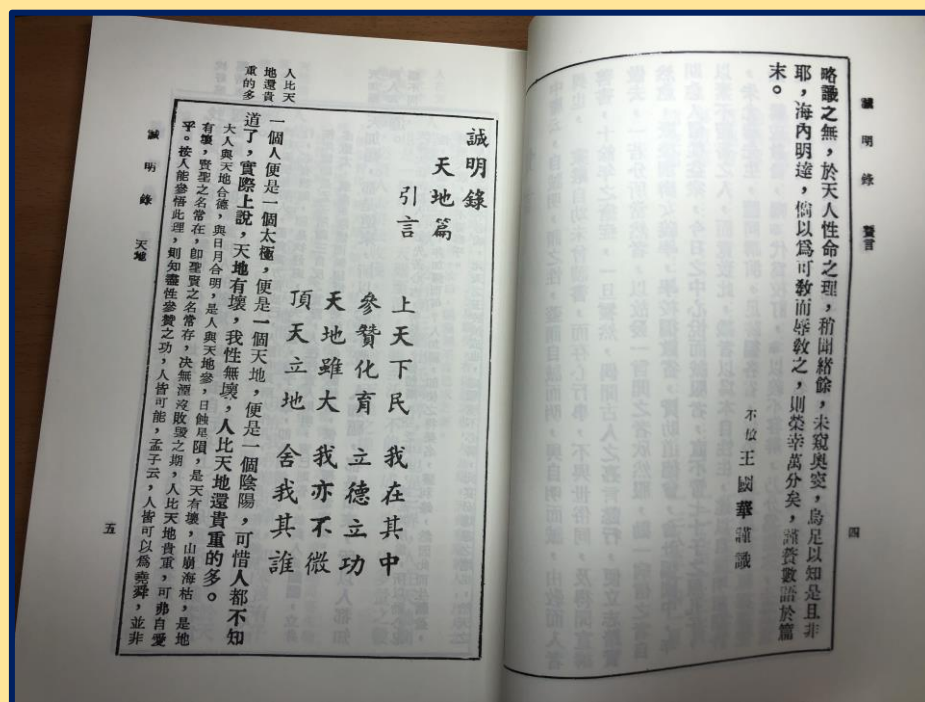 誠明錄　贅言
略識之無，於天人性命之理，稍聞緒餘，未窺奧窔，烏足以知是且非
耶，海內明達，倘以爲可敎而辱敎之，則榮幸萬分矣，謹贅數語於篇
末。
不敏　王國華謹識
四
誠明錄
天地篇
引言
上天下民　我在其中
參贊化育　立德立功
天地雖大　我亦不微
頂天立地　舍我其誰
人比天
地還貴
重的多
一個人便是一個太極，便是一個天地，便是一個陰陽，可惜人都不知
道了，實際上說，天地有壞，我性無壞，人比天地還貴重的多。
大人與天地合德，與日月合明，是人與天地參，日蝕星隕，是天有壞，山崩海枯，是地
有壞，賢聖之名常在，卽聖賢之名常存，決無湮沒敗毀之期，人比天地貴重，可弗自愛
乎。按人能參悟此理，則知盡性參贊之功，人皆可能，孟子云，人皆可以爲堯舜，並非
誠明錄　天地
五